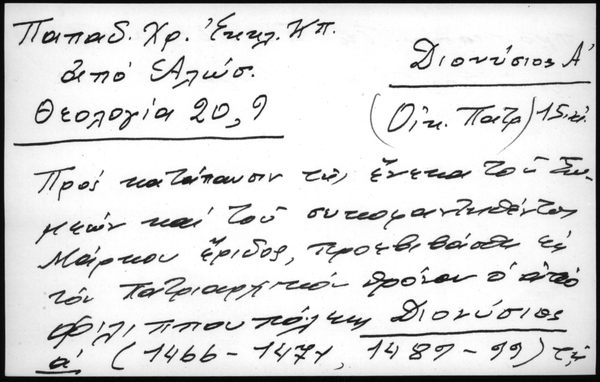 Παπαδ. Χρ. Ἐκκλ. Ἠπ.
ἀπό Ἁλώσ.
Θεολογία 20, 9
Διονύσιος Α'
(Οἰκ. Πατρ) 15
Πρός κατάπαυσιν τῆς ἕνεκα τοῦ Συ-
μεών καί τοῦ συκοφαντηθέντος
Μάρκου ἔριδος, προεβιβάσθη εἰς
τόν Πατριαρχικόν θρόνον ὁ ἀπό
Φιλιππουπόλεως Διονύσιος
α' (1466-1471, 1489-99) τῇ